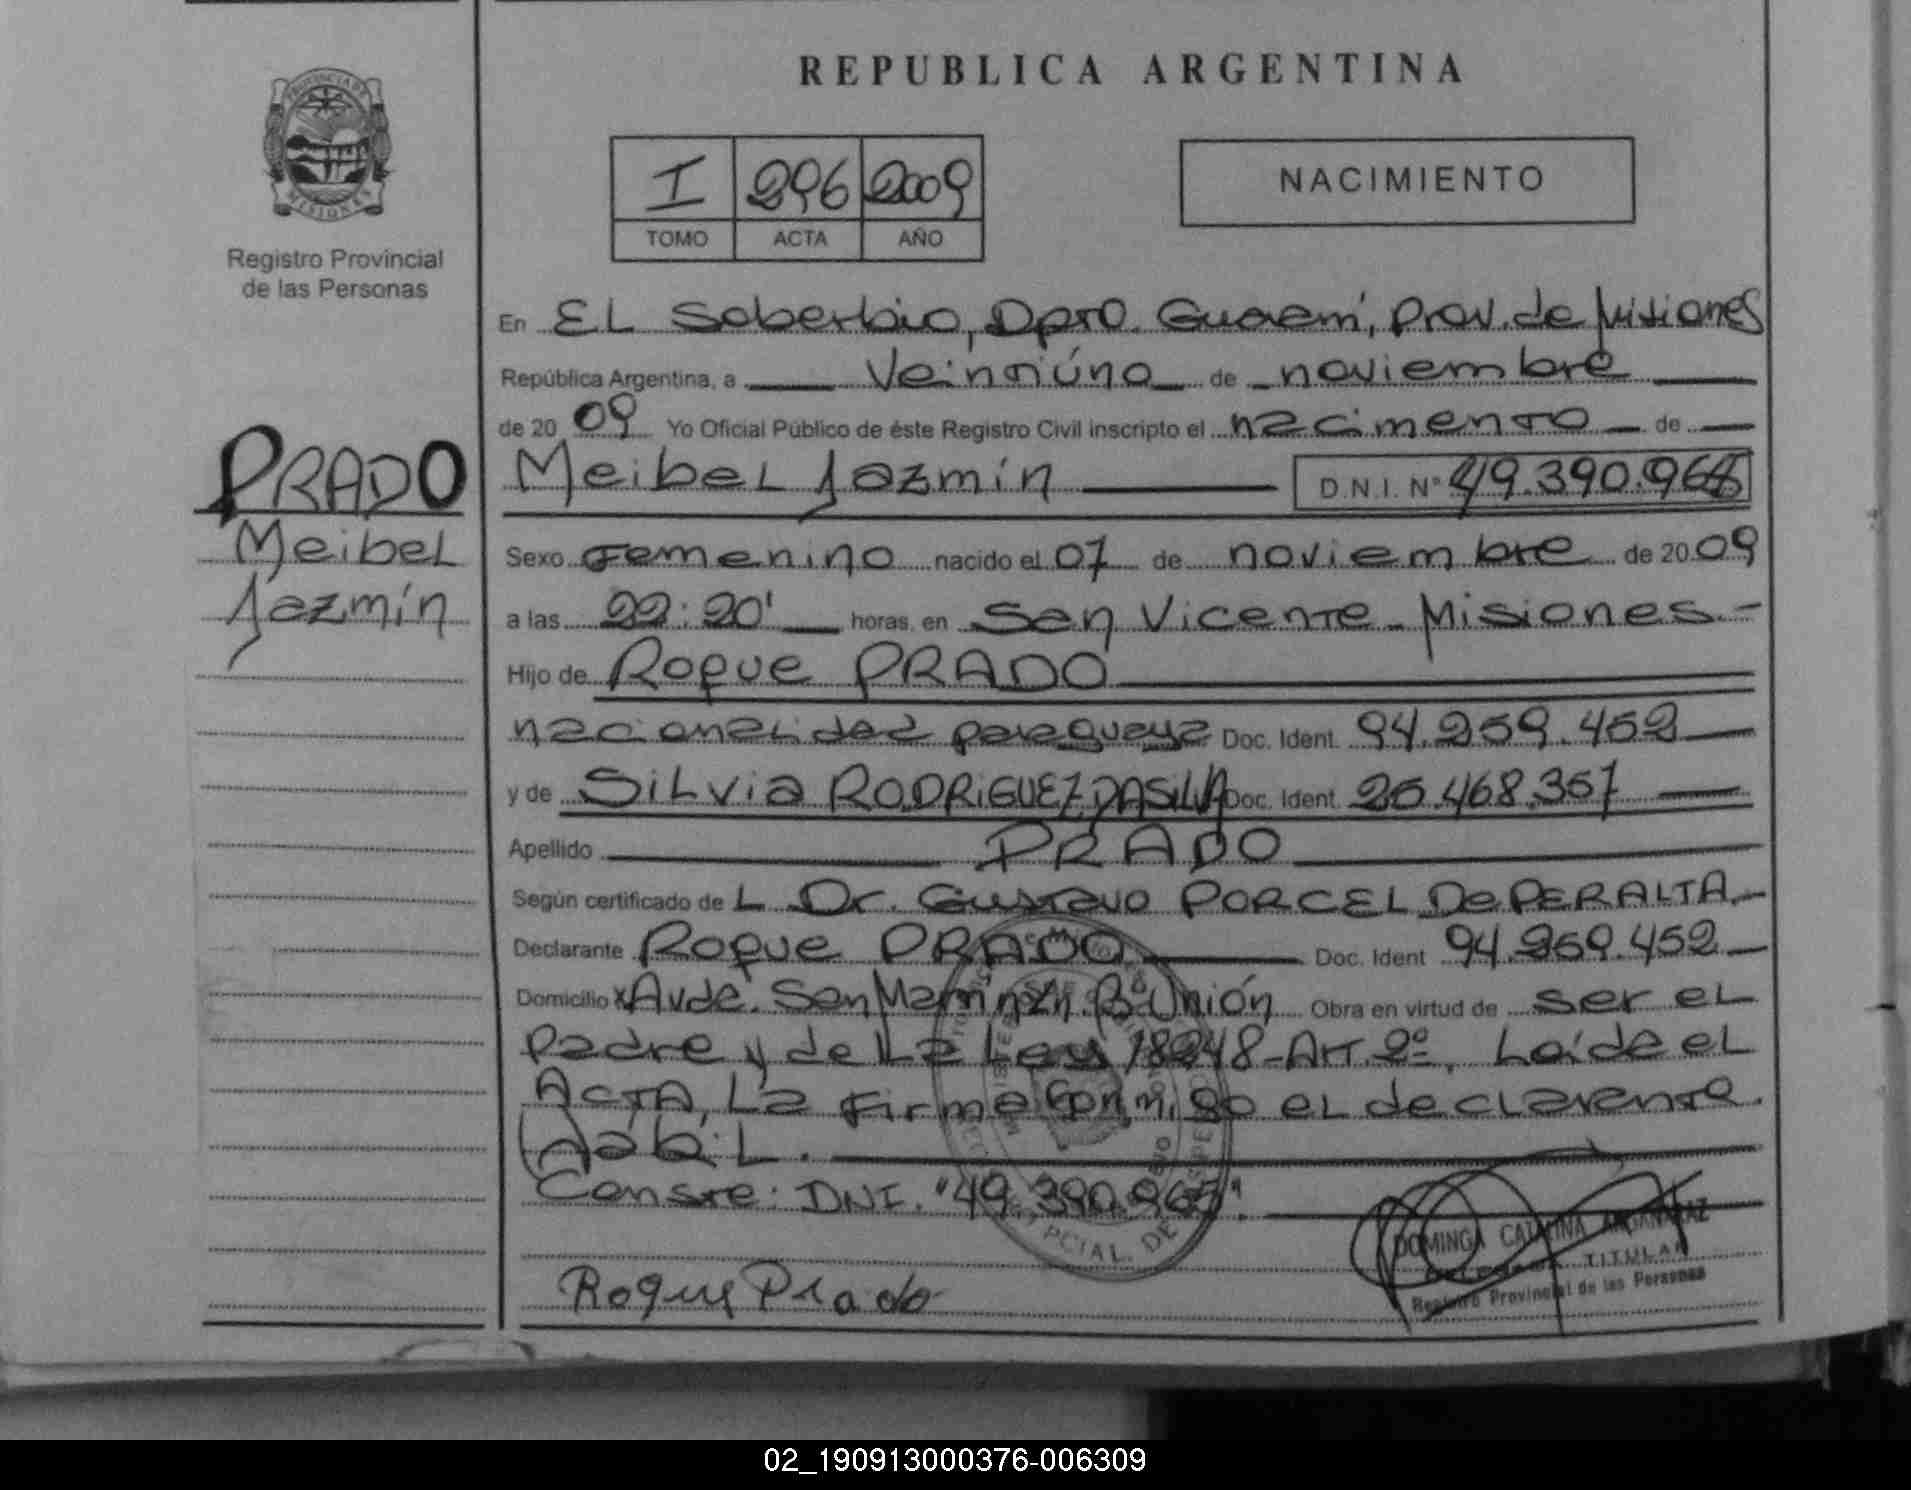 REPUBLICA ARGENTINA
PROVINCIA DE
MISIONES
Registro Provincial
de las Personas
I 296 2009
TOMO ACTA AÑO
NACIMIENTO
En EL Soberbio, Dpto. Guaraní, Prov. de Misiones
República Argentina, a Veintiúno de noviembre
de 20 09 Yo Oficial Público de éste Registro Civil inscripto el nacimento de
PRADO
Meibel
Jazmín
Meibel Jazmín D.N.I. Nº 49.390.965
Sexo Femenino nacido el 07 de noviembre de 20 09
a las 22:20' horas, en San Vicente - Misiones.-
Hijo de Roque PRADO
nacionalidad paraguaya Doc. Ident. 94.259.452
y de SiLvia RODRiGUEZ DASiLVA Doc. Ident. 25.468.357
Apellido PRADO
Según certificado de L Dr. Gustavo PORCEL De PERALTA.-
Declarante Roque PRADO Doc. Ident 94.259.452
Domicilio Avda. San Martín B° Unión Obra en virtud de ser el
padre y de La Ley 18248-Art. 2º. Leída el
ACTA, La Firma Conmigo el declarante
Hábil.
Conste: DNI. "49.390.965".
Roque Prado
DOMINGA CATALINA
TITULAR
Registro Provincial de las Personas
02_190913000376-006309